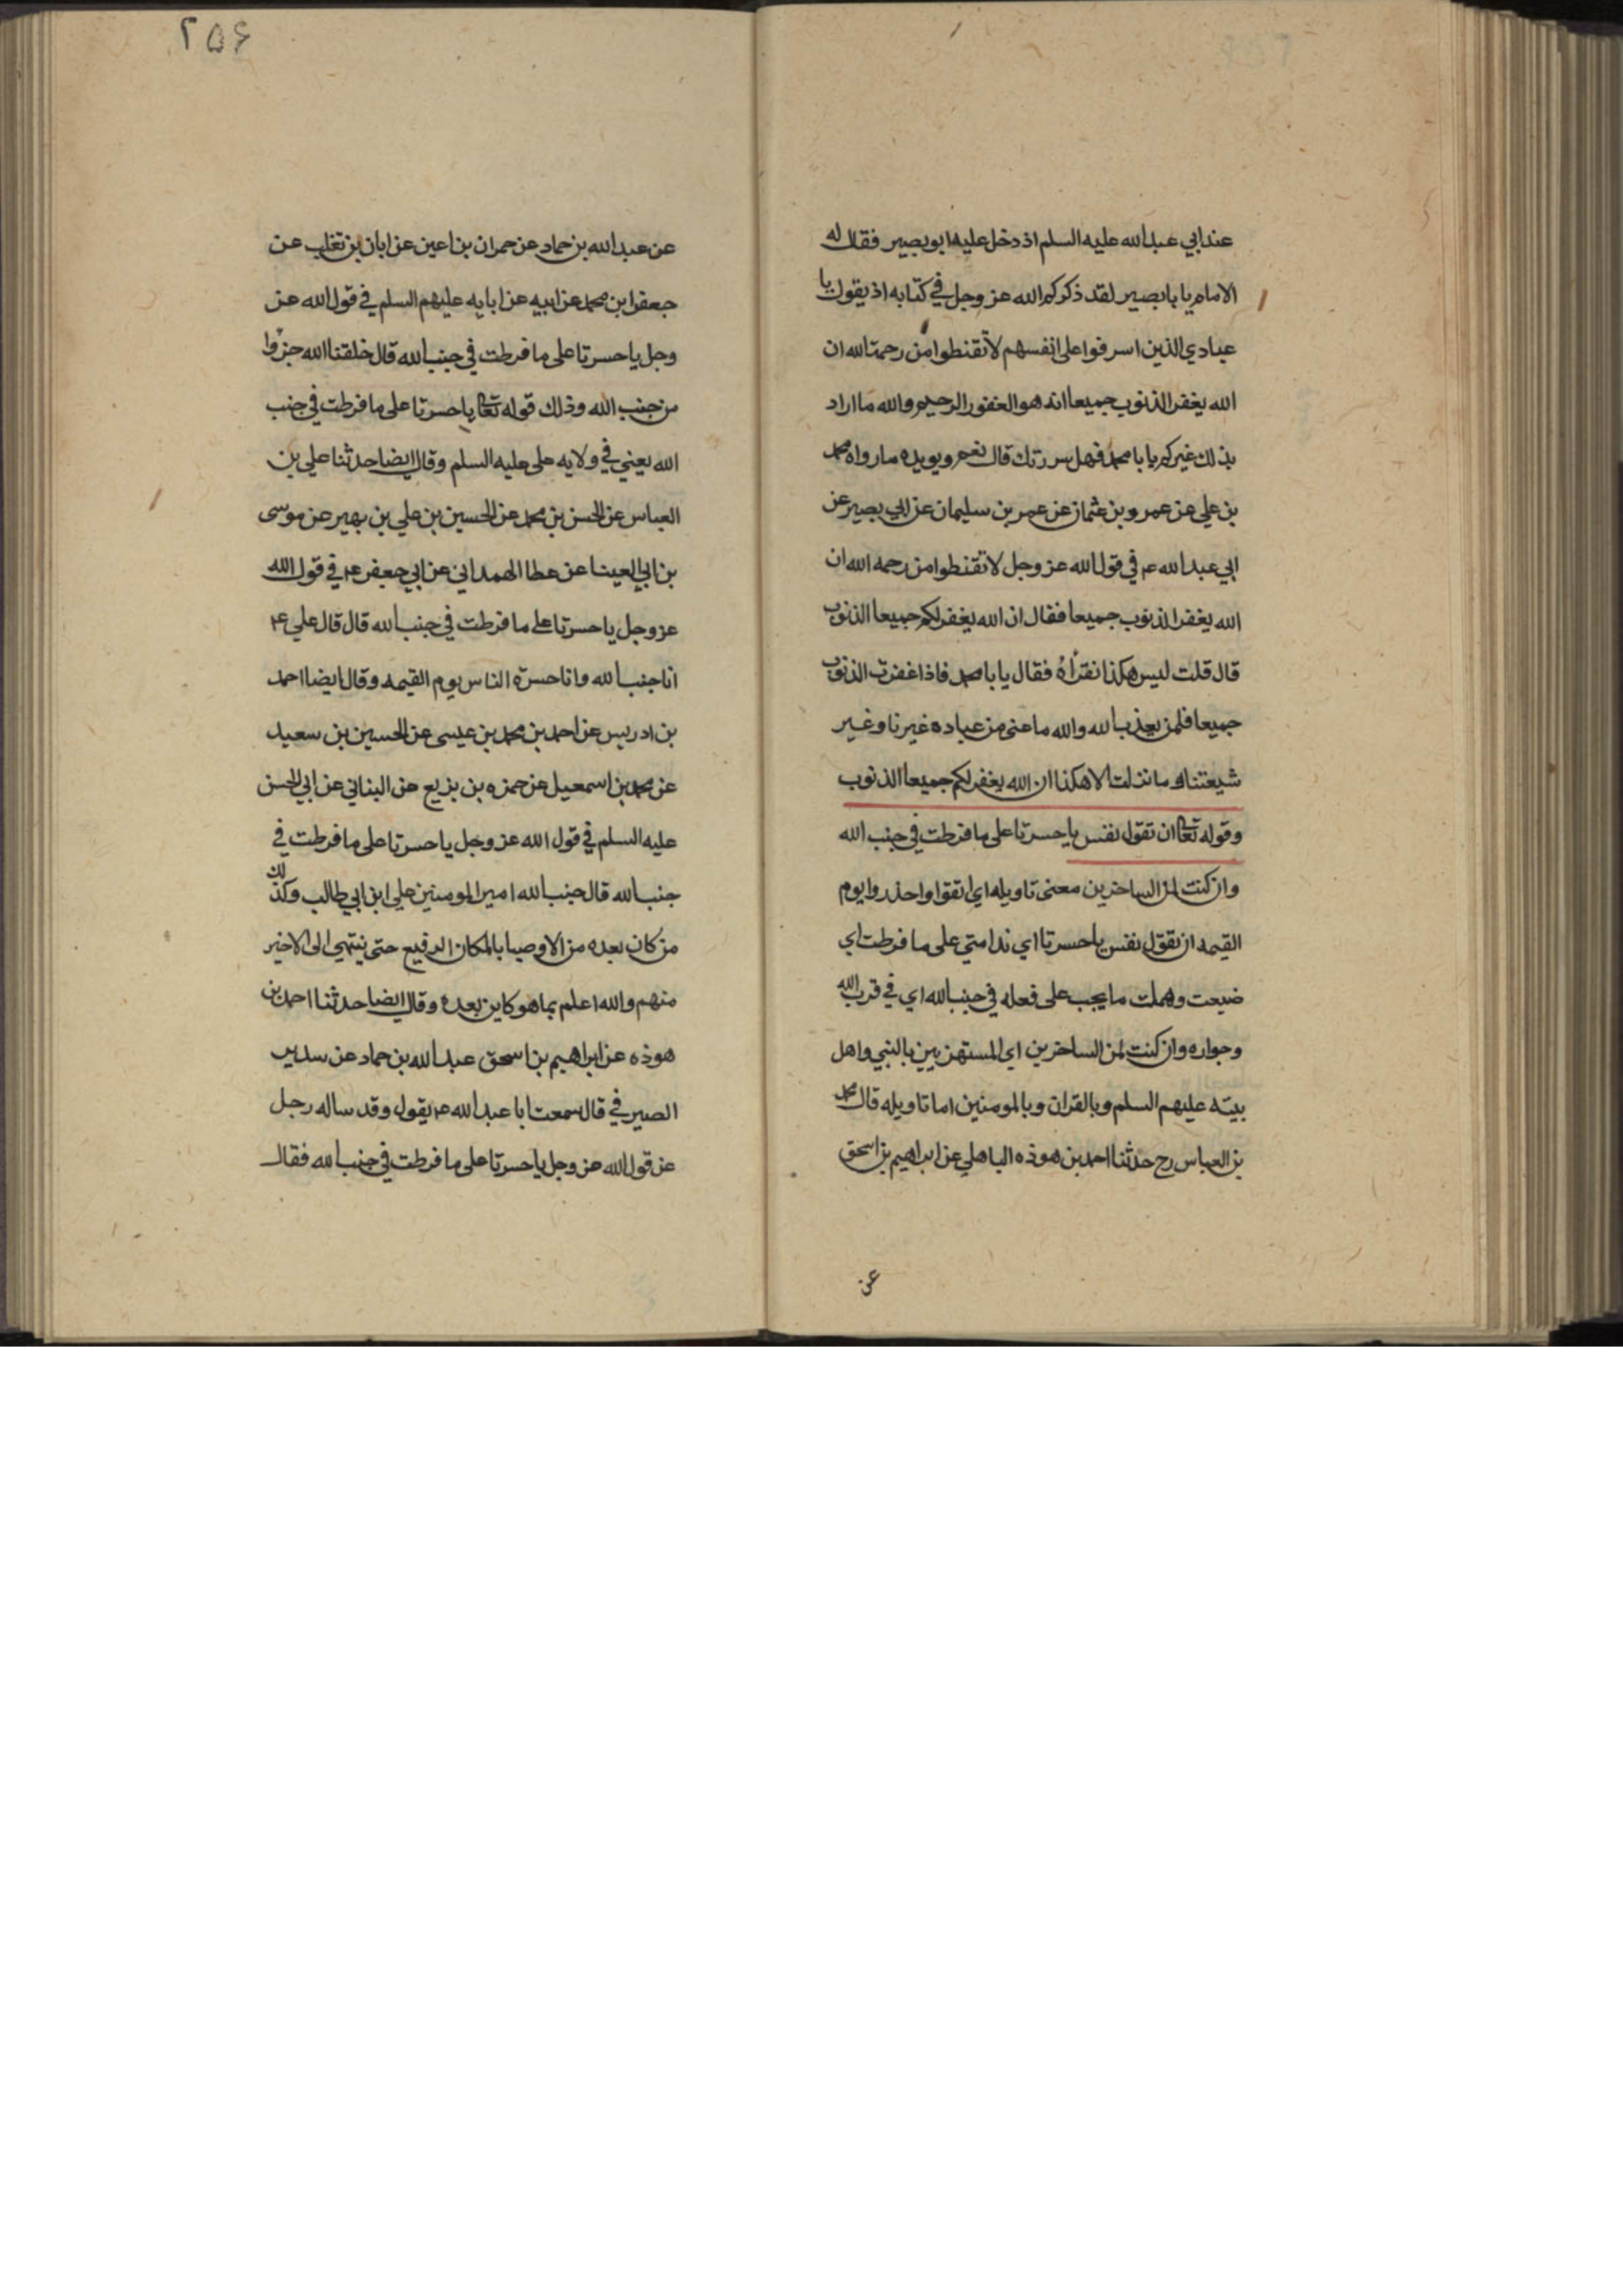 عند ابي عبد الله عليه السلم اذ دخل عليه ابو بصير فقال له
الامام يا بابصير لقد ذكركم الله عز وجل في كتابه اذ يقول يا
عبادي الذين اسرفوا على انفسهم لا تقنطوا من رحمة الله ان
الله يغفر الذنوب جميعا انه هو الغفور الرحيم والله ما اراد
بذلك غيركم يا با محمد فهل سررتك قال نعم ويويده ما رواه محمد
بن علي عن عمرو بن عثمان عن عمر بن سليمان عن ابي بصير عن
ابي عبد الله ع في قول الله عز وجل لا تقنطوا من رحمه الله ان
الله يغفر الذنوب جميعا فقال ان الله يغفر لكم جميعا الذنوب
قال قلت ليس هكذا نقرأه فقال يا با محمد فاذا غفرت الذنوب
جميعا فلمن يعذب الله والله ما عنى من عباده غيرنا وغير
شيعتنا وما نزلت الا هكذا ان الله يغفر لكم جميعا الذنوب
وقوله تعا ان تقول نفس يا حسرتا على ما فرطت في جنب الله
وان كنت لمن الساخرين معنى تاويله اي اتقوا واحذروا يوم
القيمه ان تقول نفس يا حسرتا اي ندامتي على ما فرطت اي
ضيعت وهملت ما يجب على فعله في جنب الله اي في قرب الله
وجواره وان كنت لمن الساخرين اي المستهزيين بالنبي واهل
بيته عليهم السلم وبالقران وبالمومنين اما تاويله قال محمد
بن العباس رح حدثنا احمد بن هوذه الباهلي عن ابراهيم بن اسحق
عن
٢٥۶
عن عبد الله بن حماد عن حمران بن اعين عن ابان بن تغلب عن
جعفر ابن محمد عن ابيه عن ابايه عليهم السلم في قول الله عز
وجل يا حسرتا على ما فرطت في جنب الله قال خلقنا الله جزؤا
من جنب الله وذلك قوله تعا يا حسرتا على ما فرطت في جنب
الله يعني في ولايه على عليه السلم وقال ايضا حدثنا علي بن
العباس عن الحسن بن محمد عن الحسين بن علي بن بهير عن موسى
بن ابي العينا عن عطا الهمداني عن ابي جعفر ع في قول الله
عز وجل يا حسرتا على ما فرطت في جنب الله قال قال علي ع
انا جنب الله وانا حسرة الناس يوم القيمه وقال ايضا احمد
بن ادريس عن احمد بن محمد بن عيسى عن الحسين بن سعيد
عن محمد بن اسمعيل عن حمزه بن بزيع عن البناني عن ابي الحسن
عليه السلم في قول الله عز وجل يا حسرتا على ما فرطت في
جنب الله قال جنب الله امير المومنين علي ابن ابي طالب وكذلك
من كان بعده من الاوصيا بالمكان الرفيع حتى ينتهي الى الاخير
منهم والله اعلم بما هو كاين بعده وقال ايضا حدثنا احمد بن
هوذه عن ابراهيم بن اسحق عبد الله بن حماد عن سدير
الصيرفي قال سمعت ابا عبد الله ع يقول وقد ساله رجل
عن قول الله عز وجل يا حسرتا على ما فرطت في جنب الله فقال